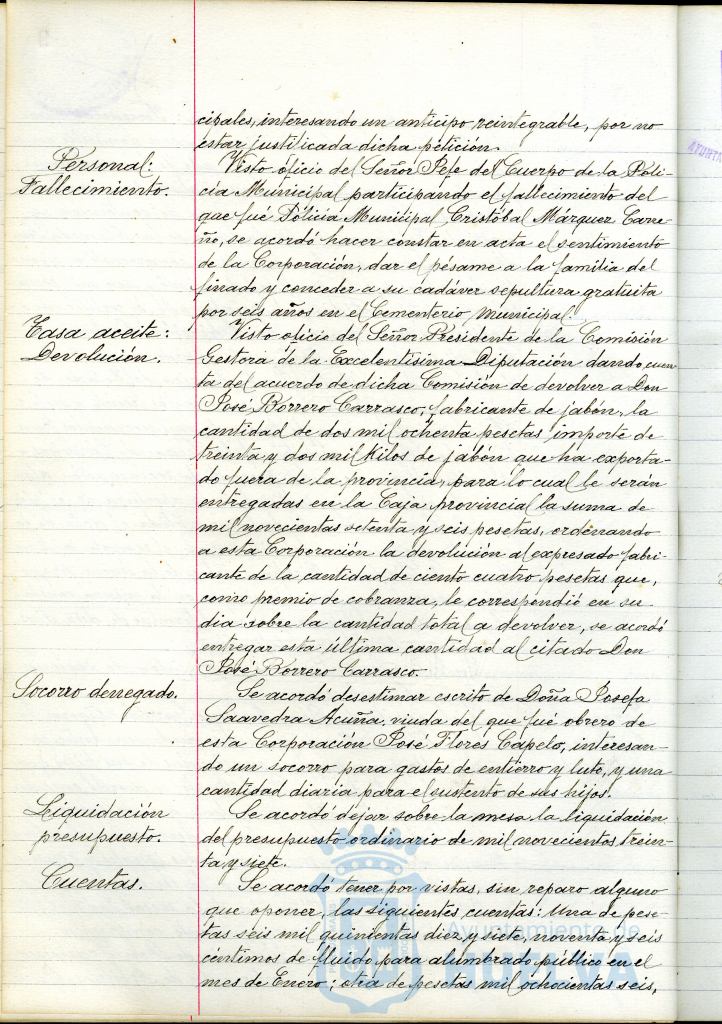 cipales, interesando un anticipo reintegrable, por no
estar justificada dicha petición.
Personal:
Fallecimiento.
Visto oficio del Señor Jefe del Cuerpo de la Poli-
cía Municipal participando el fallecimiento del
que fué Policía Municipal Cristóbal Márquez Carre-
ño, se acordó hacer constar en acta el sentimiento
de la Corporación, dar el pésame a la familia del
finado y conceder a su cadáver sepultura gratuita
por seis años en el Cementerio Municipal.
Tasa aceite:
Devolución.
Visto oficio del Señor Presidente de la Comisión
Gestora de la Excelentísima Diputación dando cuen-
ta del acuerdo de dicha Comisión de devolver a Don
José Borrero Carrasco, fabricante de jabón, la
cantidad de dos mil ochenta pesetas importe de
treinta y dos mil kilos de jabón que ha exporta-
do fuera de la provincia, para lo cual le serán
entregadas en la Caja provincial la suma de
mil novecientas setenta y seis pesetas, ordenando
a esta Corporación la devolución al expresado fabri-
cante de la cantidad de ciento cuatro pesetas que,
como premio de cobranza, le correspondió en su
dia sobre la cantidad total a devolver, se acordó
entregar esta última cantidad al citado Don
José Borrero Carrasco.
Socorro denegado.
Se acordó desestimar escrito de Doña Josefa
Saavedra Acuña, viuda del que fué obrero de
esta Corporación José Flores Capelo, interesan-
do un socorro para gastos de entierro y luto, y una
cantidad diaria para el sustento de sus hijos.
Liquidación
presupuesto.
Se acordó dejar sobre la mesa la liquidación
del presupuesto ordinario de mil novecientos trein-
ta y siete.
Cuentas.
Se acordó tener por vistas, sin reparo alguno
que oponer, las siguientes cuentas: Una de pese-
tas seis mil quinientas diez y siete, noventa y seis
céntimos de fluido para alumbrado público en el
mes de Enero; otra de pesetas mil ochocientas seis,
Ayuntamiento de
HUELVA